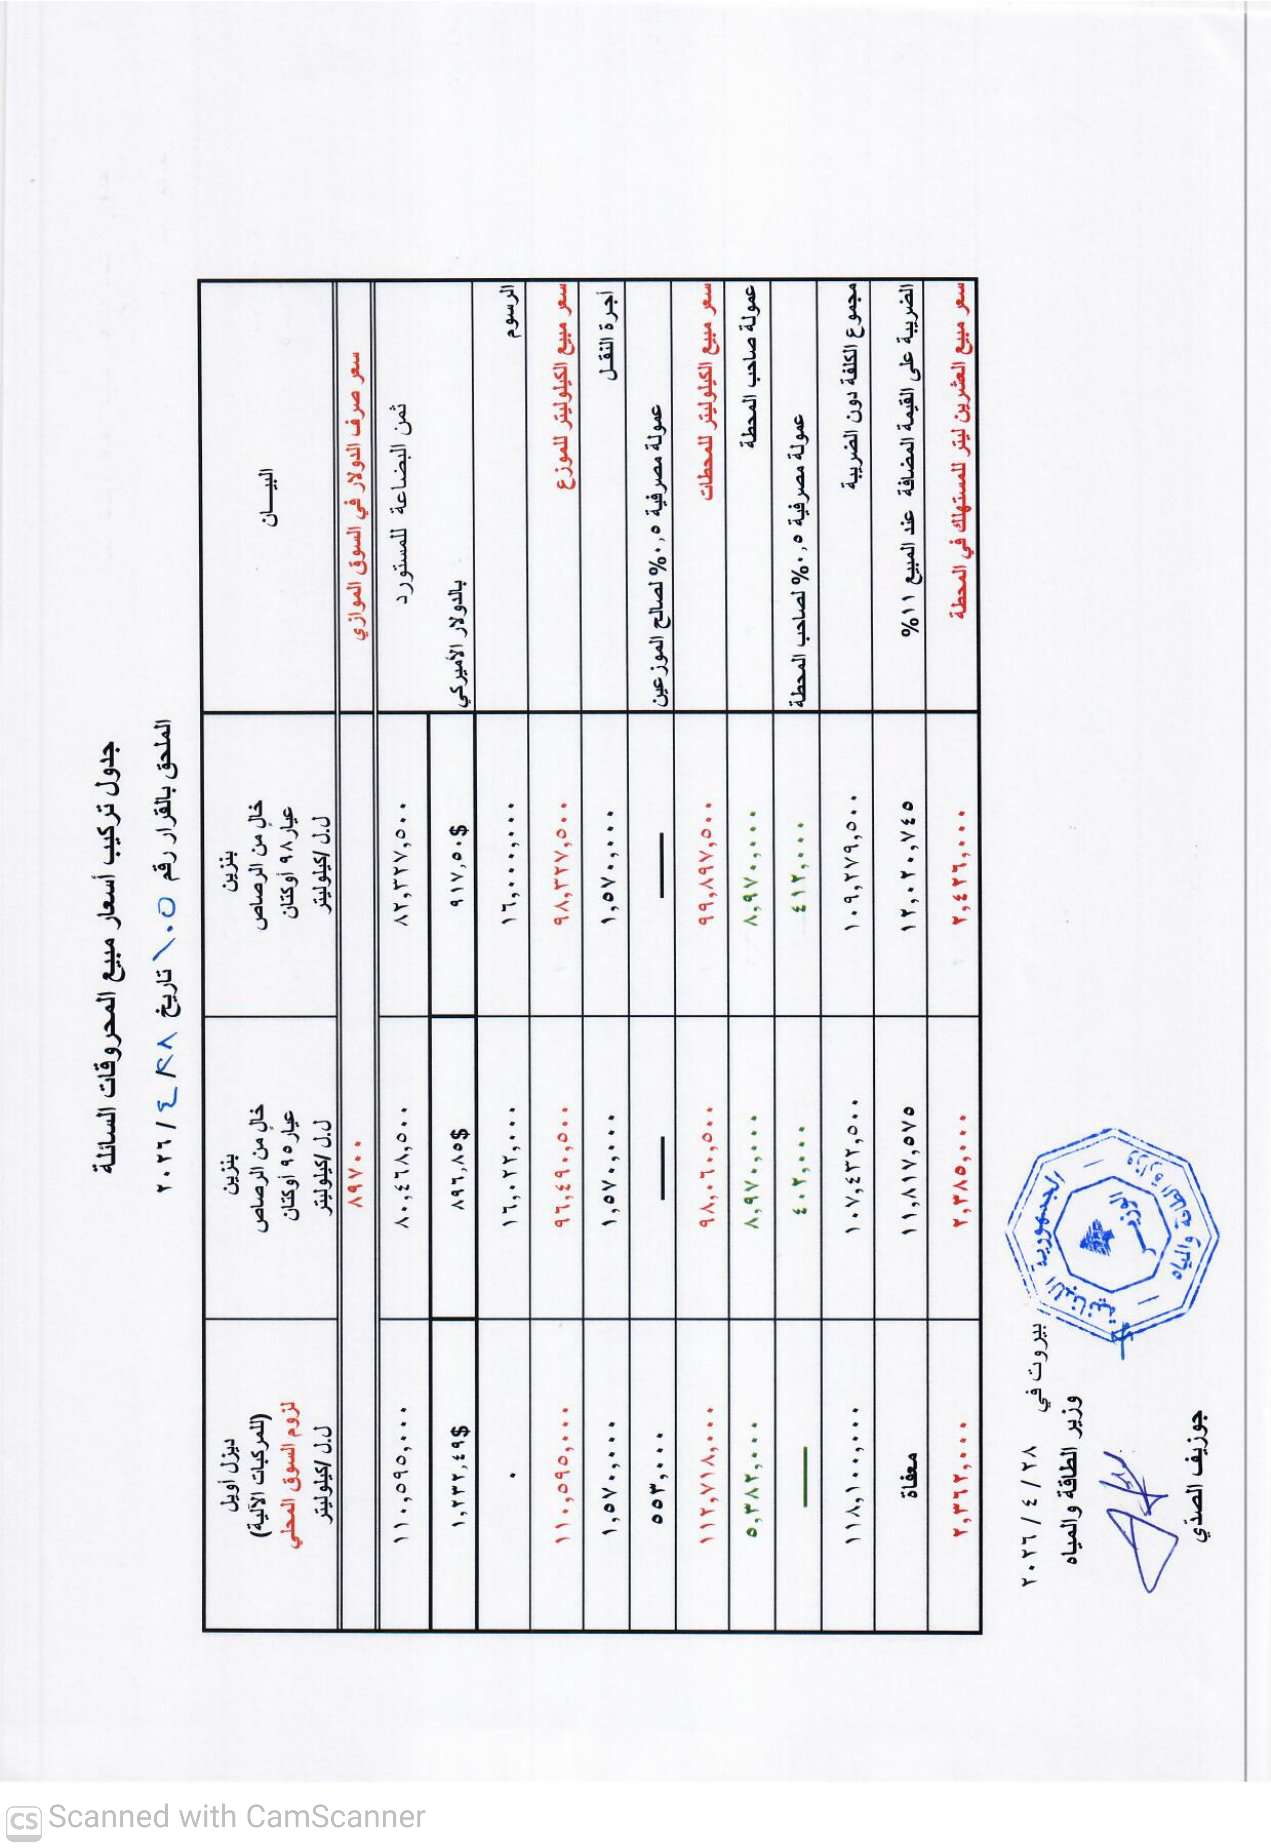 جدول تركيب أسعار مبيع المحروقات السائلة
الملحق بالقرار رقم ١٠٥ تاريخ ٢٨ / ٤ / ٢٠٢٦
البيـــان
بنزين
خالٍ من الرصاص
عيار ٩٨ أوكتان
ل.ل /كيلوليتر
بنزين
خالٍ من الرصاص
عيار ٩٥ أوكتان
ل.ل /كيلوليتر
ديزل أويل
(للمركبات الآلية)
لزوم السوق المحلي
ل.ل /كيلوليتر
سعر صرف الدولار في السوق الموازي ٨٩٧٠٠
ثمن البضاعة للمستورد ٨٢,٣٢٧,٥٠٠ ٨٠,٤٦٨,٥٠٠ ١١٠,٥٩٥,٠٠٠
بالدولار الأميركي ٩١٧,٥٠$ ٨٩٦,٨٥$ ١,٢٣٢,٤٩$
الرسوم ١٦,٠٠٠,٠٠٠ ١٦,٠٢٢,٠٠٠ ٠
سعر مبيع الكيلوليتر للموزع ٩٨,٣٢٧,٥٠٠ ٩٦,٤٩٠,٥٠٠ ١١٠,٥٩٥,٠٠٠
أجرة النقـل ١,٥٧٠,٠٠٠ ١,٥٧٠,٠٠٠ ١,٥٧٠,٠٠٠
عمولة مصرفية ٠,٥% لصالح الموزعين — — ٥٥٣,٠٠٠
سعر مبيع الكيلوليتر للمحطات ٩٩,٨٩٧,٥٠٠ ٩٨,٠٦٠,٥٠٠ ١١٢,٧١٨,٠٠٠
عمولة صاحب المحطة ٨,٩٧٠,٠٠٠ ٨,٩٧٠,٠٠٠ ٥,٣٨٢,٠٠٠
عمولة مصرفية ٠,٥% لصاحب المحطة ٤١٢,٠٠٠ ٤٠٢,٠٠٠ —
مجموع الكلفة دون الضريبة ١٠٩,٢٧٩,٥٠٠ ١٠٧,٤٣٢,٥٠٠ ١١٨,١٠٠,٠٠٠
الضريبة على القيمة المضافة عند المبيع ١١% ١٢,٠٢٠,٧٤٥ ١١,٨١٧,٥٧٥ معفاة
سعر مبيع العشرين ليتر للمستهلك في المحطة ٢,٤٢٦,٠٠٠ ٢,٣٨٥,٠٠٠ ٢,٣٦٢,٠٠٠
بيروت في ٢٨ / ٤ / ٢٠٢٦
وزير الطاقة والمياه
جوزيف الصدّي
الجمهورية اللبنانية
وزارة الطاقة والمياه
الوزير
CS Scanned with CamScanner